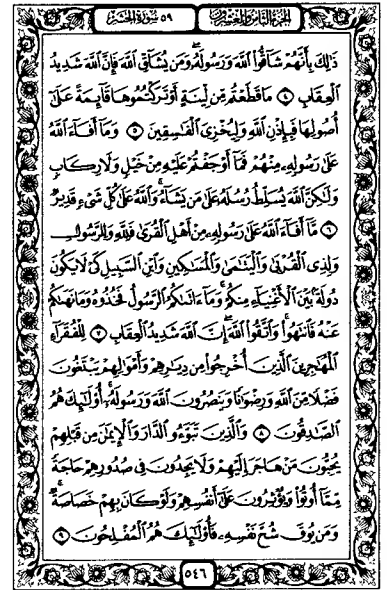 الجزء الثامن والعشرون ٥٩ سورة الحشر
ذَٰلِكَ بِأَنَّهُمْ شَآقُّوا۟ ٱللَّهَ وَرَسُولَهُۥ ۖ وَمَن يُشَآقِّ ٱللَّهَ فَإِنَّ ٱللَّهَ شَدِيدُ
ٱلْعِقَابِ ٤ مَا قَطَعْتُم مِّن لِّينَةٍ أَوْ تَرَكْتُمُوهَا قَآئِمَةً عَلَىٰٓ
أُصُولِهَا فَبِإِذْنِ ٱللَّهِ وَلِيُخْزِىَ ٱلْفَـٰسِقِينَ ٥ وَمَآ أَفَآءَ ٱللَّهُ
عَلَىٰ رَسُولِهِۦ مِنْهُمْ فَمَآ أَوْجَفْتُمْ عَلَيْهِ مِنْ خَيْلٍ وَلَا رِكَابٍ
وَلَـٰكِنَّ ٱللَّهَ يُسَلِّطُ رُسُلَهُۥ عَلَىٰ مَن يَشَآءُ ۚ وَٱللَّهُ عَلَىٰ كُلِّ شَىْءٍ قَدِيرٌ
٦ مَّآ أَفَآءَ ٱللَّهُ عَلَىٰ رَسُولِهِۦ مِنْ أَهْلِ ٱلْقُرَىٰ فَلِلَّهِ وَلِلرَّسُولِ
وَلِذِى ٱلْقُرْبَىٰ وَٱلْيَتَـٰمَىٰ وَٱلْمَسَـٰكِينِ وَٱبْنِ ٱلسَّبِيلِ كَىْ لَا يَكُونَ
دُولَةًۢ بَيْنَ ٱلْأَغْنِيَآءِ مِنكُمْ ۚ وَمَآ ءَاتَىٰكُمُ ٱلرَّسُولُ فَخُذُوهُ وَمَا نَهَىٰكُمْ
عَنْهُ فَٱنتَهُوا۟ ۚ وَٱتَّقُوا۟ ٱللَّهَ ۖ إِنَّ ٱللَّهَ شَدِيدُ ٱلْعِقَابِ ٧ لِلْفُقَرَآءِ
ٱلْمُهَـٰجِرِينَ ٱلَّذِينَ أُخْرِجُوا۟ مِن دِيَـٰرِهِمْ وَأَمْوَٰلِهِمْ يَبْتَغُونَ
فَضْلًا مِّنَ ٱللَّهِ وَرِضْوَٰنًا وَيَنصُرُونَ ٱللَّهَ وَرَسُولَهُۥٓ ۚ أُو۟لَـٰٓئِكَ هُمُ
ٱلصَّـٰدِقُونَ ٨ وَٱلَّذِينَ تَبَوَّءُو ٱلدَّارَ وَٱلْإِيمَـٰنَ مِن قَبْلِهِمْ
يُحِبُّونَ مَنْ هَاجَرَ إِلَيْهِمْ وَلَا يَجِدُونَ فِى صُدُورِهِمْ حَاجَةً
مِّمَّآ أُوتُوا۟ وَيُؤْثِرُونَ عَلَىٰٓ أَنفُسِهِمْ وَلَوْ كَانَ بِهِمْ خَصَاصَةٌ ۚ
وَمَن يُوقَ شُحَّ نَفْسِهِۦ فَأُو۟لَـٰٓئِكَ هُمُ ٱلْمُفْلِحُونَ ٩
٥٤٦